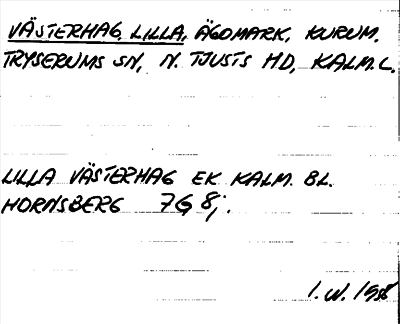 VÄSTERHAG, LILLA, ÄGOMARK, KURUM.
TRYSERUMS SN, N. TJUSTS HD, KALM. L.
LILLA VÄSTERHAG EK KALM. BL.
HORNSBERG 7G 8j.
I. W. 1958